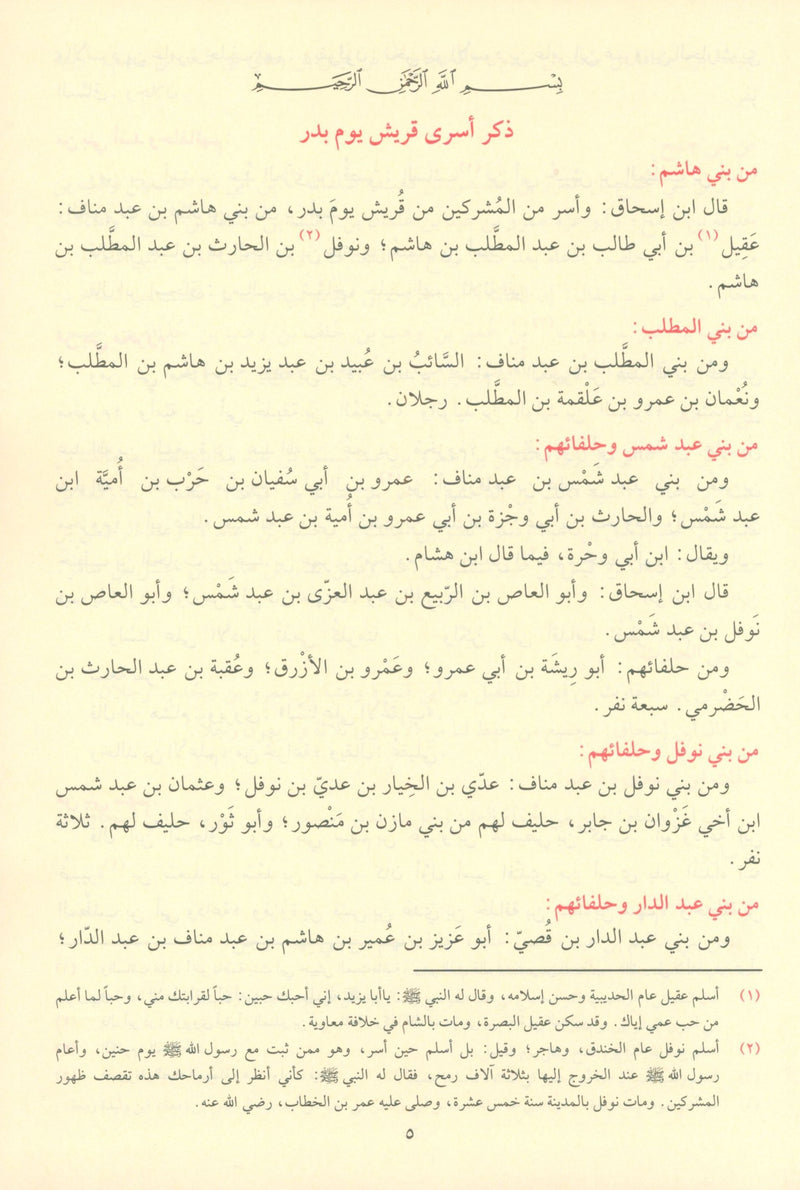 بِسْمِ اللَّهِ الرَّحْمَٰنِ الرَّحِيمِ
ذكر أسرى قريش يوم بدر
من بني هاشم:
قال ابن إسحاق: وأسر من المُشركين من قُريش يومَ بدر، من بني هاشم بن عبد مناف:
عَقِيل(١) بن أبي طالب بن عبد المطَّلب بن هاشم؛ ونوفل(٢) بن الحارث بن عبد المطَّلب بن
هاشم.
من بني المطلب:
ومن بني المطَّلب بن عبد مناف: السَّائبُ بن عُبيد بن عبد يزيد بن هاشم بن المطَّلب؛
ونُعْمان بن عمرو بن عَلْقمة بن المطَّلب. رجلان.
من بني عبد شمس وحلفائهم:
ومن بني عبد شَمْس بن عبد مناف: عمرو بن أبي سُفيان بن حَرْب بن أُميَّة ابن
عبد شَمْس؛ والحارث بن أبي وجْزة بن أبي عمرو بن أُمية بن عبد شمس.
ويقال: ابن أبي وحْرة، فيما قال ابن هشام.
قال ابن إسحاق: وأبو العاص بن الرّبيع بن عبد العزّى بن عبد شَمْس؛ وأبو العاص بن
نَوفل بن عبد شَمْس.
ومن حلفائهم: أبو رِيشَة بن أبي عمرو؛ وعَمْرو بن الأزْرق؛ وعُقبة بن عبد الحارث بن
الحَضْرمي. سبعة نفر.
من بني نوفل وحلفائهم:
ومن بني نوفل بن عبد مناف: عدّي بن الخِيار بن عديّ بن نوفل؛ وعثمان بن عبد شمس
ابن أخي غَزْوان بن جابر، حليف لهم من بني مازن بن مَنْصور؛ وأبو ثَوْر، حليف لهم. ثلاثة
نفر.
من بني عبد الدار وحلفائهم:
ومن بني عبد الدار بن قُصيّ: أبو عَزيز بن عُمير بن هاشم بن عبد مناف بن عبد الدّار؛
(١) أسلم عقيل عام الحديبية وحسن إسلامه، وقال له النبي ﷺ: ياأبا يزيد، إني أحبك حبين: حباً لقرابتك مني، وحباً لما أعلم
من حب عمي إياك. وقد سكن عقيل البصرة، ومات بالشام في خلافة معاوية.
(٢) أسلم نوفل عام الخندق، وهاجر؛ وقيل: بل أسلم حين أسر، وهو ممن ثبت مع رسول الله ﷺ يوم حنين، وأعام
رسول الله ﷺ عند الخروج إليها بثلاثة آلاف رمح، فقال له النبي ﷺ: كأني أنظر إلى أرماحك هذه تقصف ظهور
المشركين. ومات نوفل بالمدينة سنة خمس عشرة، وصلى عليه عمر بن الخطاب، رضي الله عنه.
٥